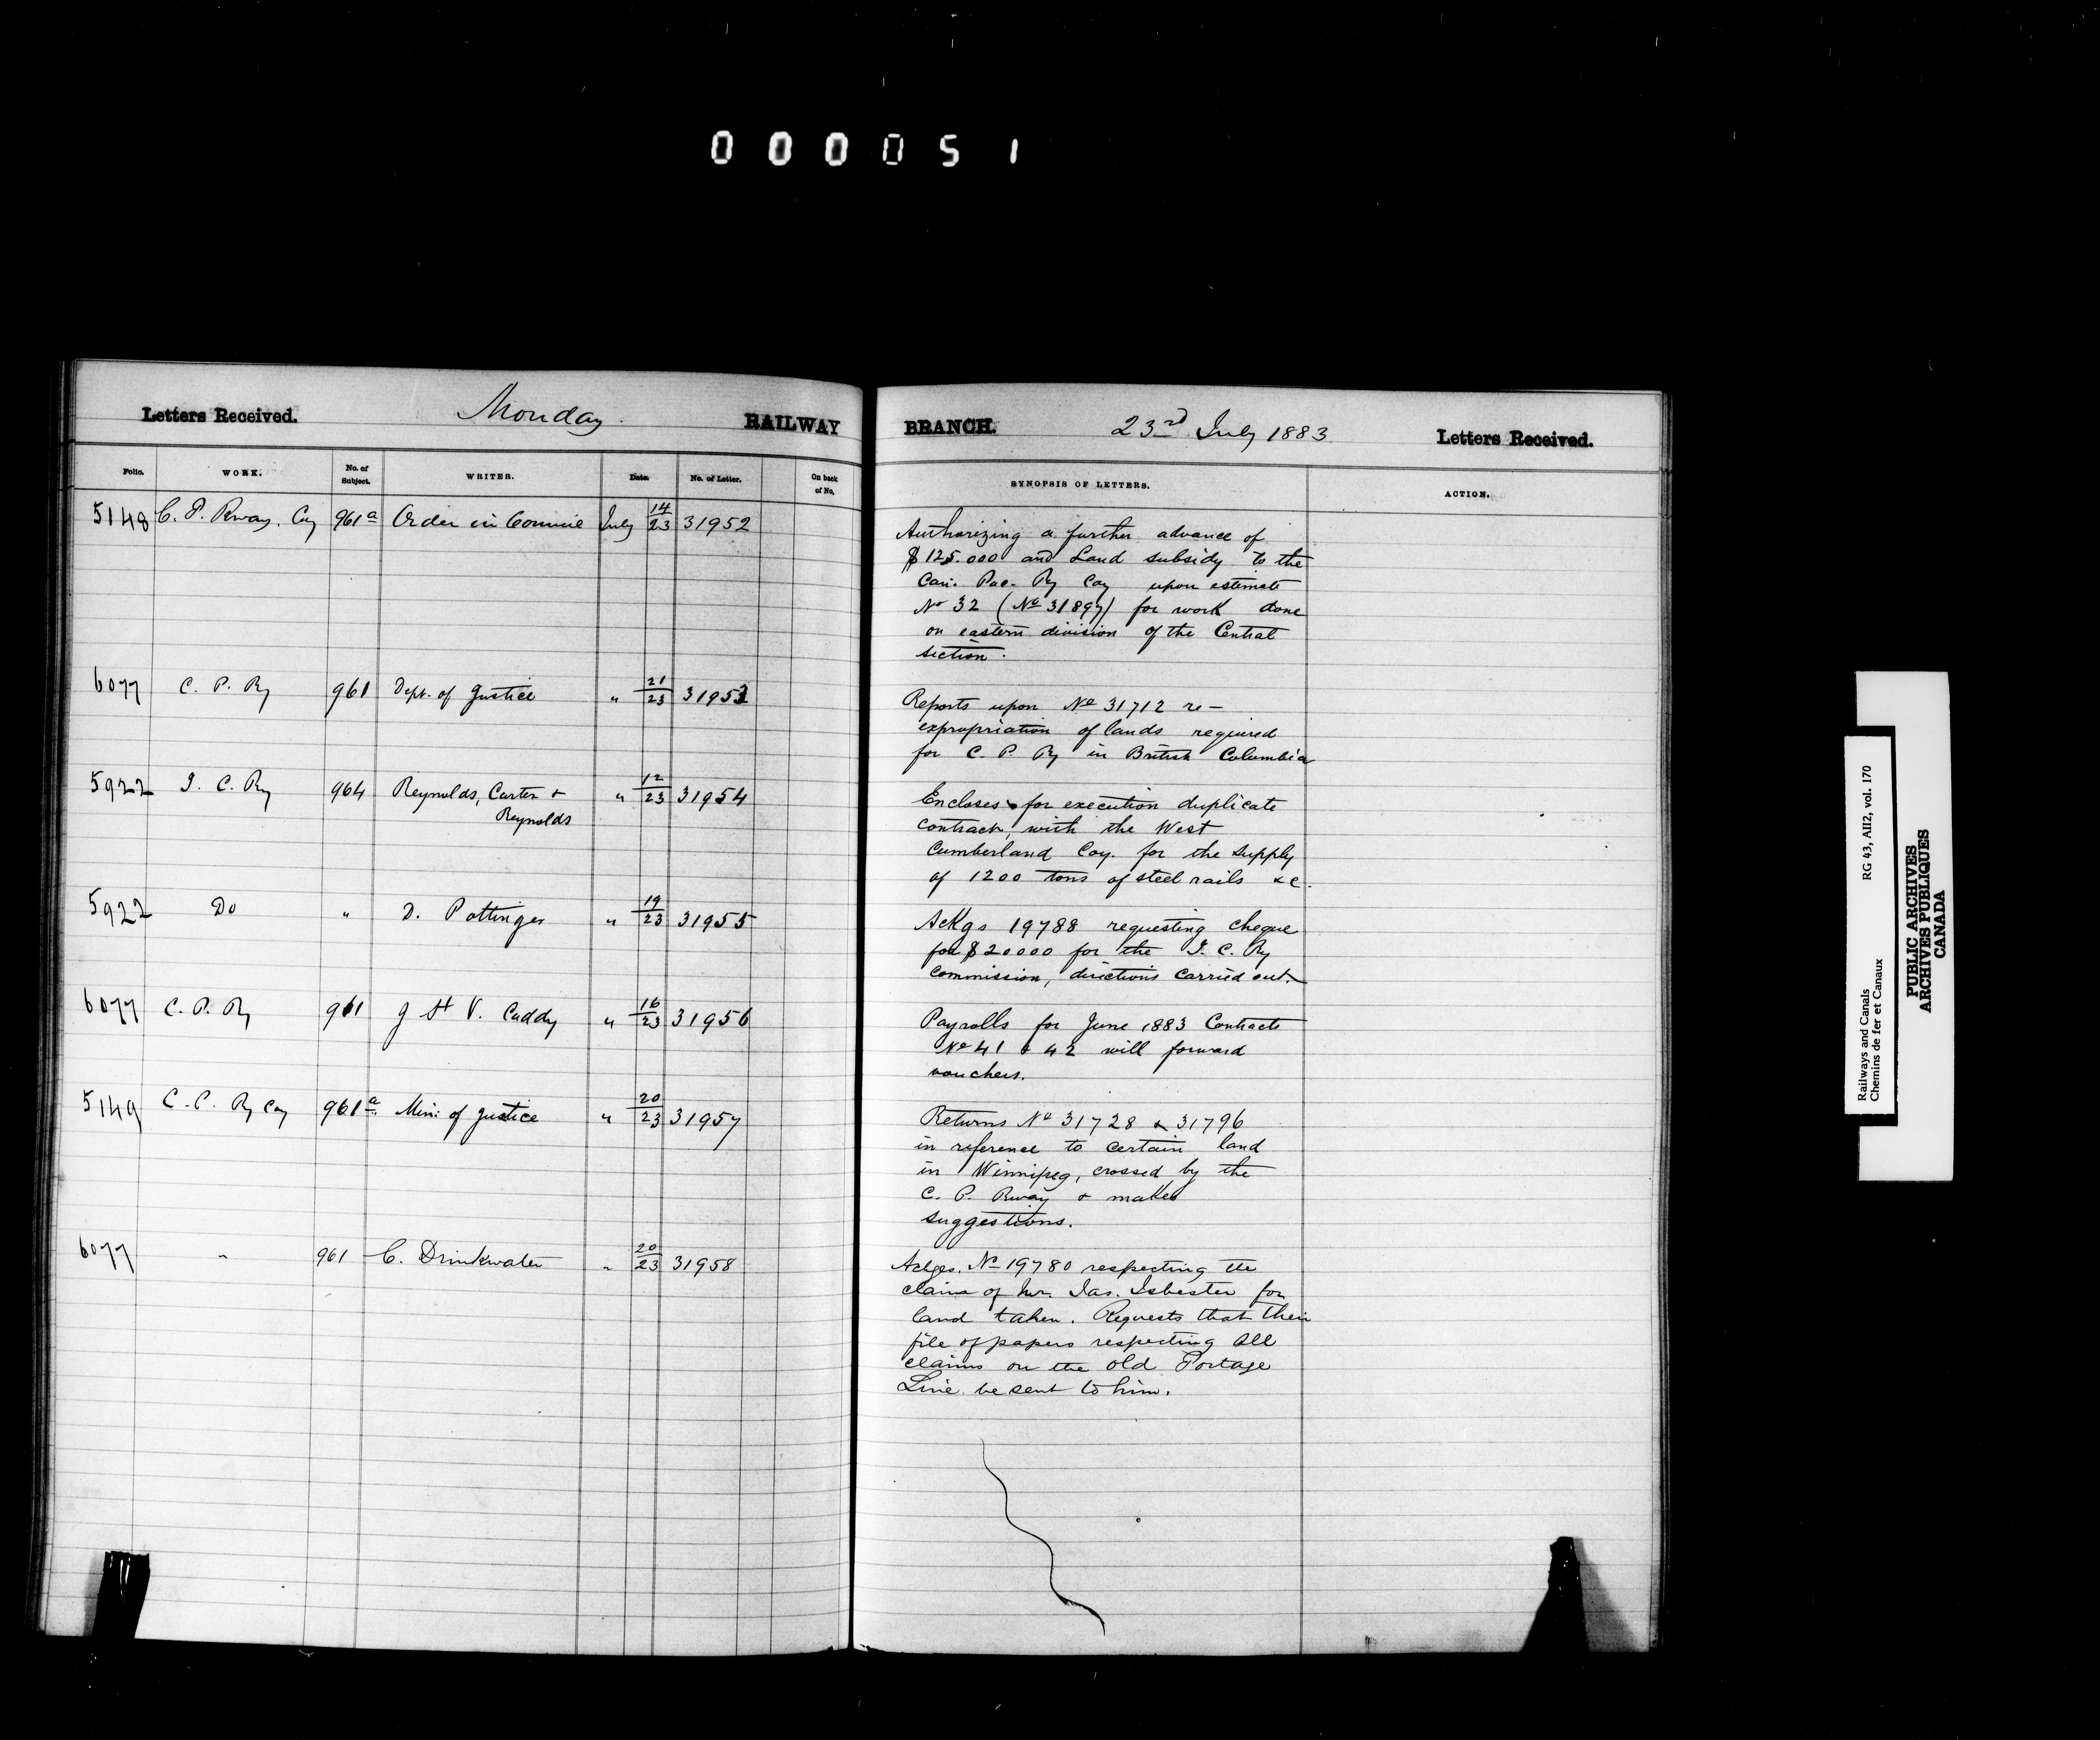 000051
Letters Received. Monday. RAILWAY BRANCH. 23rd July 1883 Letters Received.
Folio. WORK. No. of Subject. WRITER. Date. No. of Letter. On back of No. SYNOPSIS OF LETTERS. ACTION.
5148 C. P. Rway. Coy 961a Order in Council July 14/23 31952
Authorizing a further advance of
$125.000 and Land subsidy to the
Can. Pac. Ry Coy upon estimate
No 32 (No 31897) for work done
on eastern division of the Central
section.
6077 C. P. Ry 961 Dept. of Justice " 21/23 31953
Reports upon No 31712 re-
expropriation of lands required
for C. P. Ry in British Columbia
5922 I. C. Ry 964 Reynolds, Carter & " 12/23 31954
Reynolds
Encloses for execution duplicate
contract, with the West
Cumberland Coy. for the supply
of 1200 tons of steel rails &c.
5922 Do " D. Pottinger " 19/23 31955
Ackgs 19788 requesting cheque
for $20000 for the I. C. Ry
Commission, directions carried out.
6077 C. P. Ry 961 J H V. Caddy " 16/23 31956
Payrolls for June 1883 Contracts
No 41 & 42 will forward
vouchers.
5149 C. P. Ry Coy 961a Min: of Justice " 20/23 31957
Returns No 31728 & 31796
in reference to certain land
in Winnipeg, crossed by the
C. P. Rway & makes
suggestions.
6077 " 961 C. Drinkwater " 20/23 31958
Ackges. No 19780 respecting the
claim of Mr. Jas. Isbester for
land taken. Requests that their
file of papers respecting all
claims on the old Portage
Line be sent to him.
Railways and Canals RG 43, AII2, vol. 170
Chemins de fer et Canaux
PUBLIC ARCHIVES
ARCHIVES PUBLIQUES
CANADA